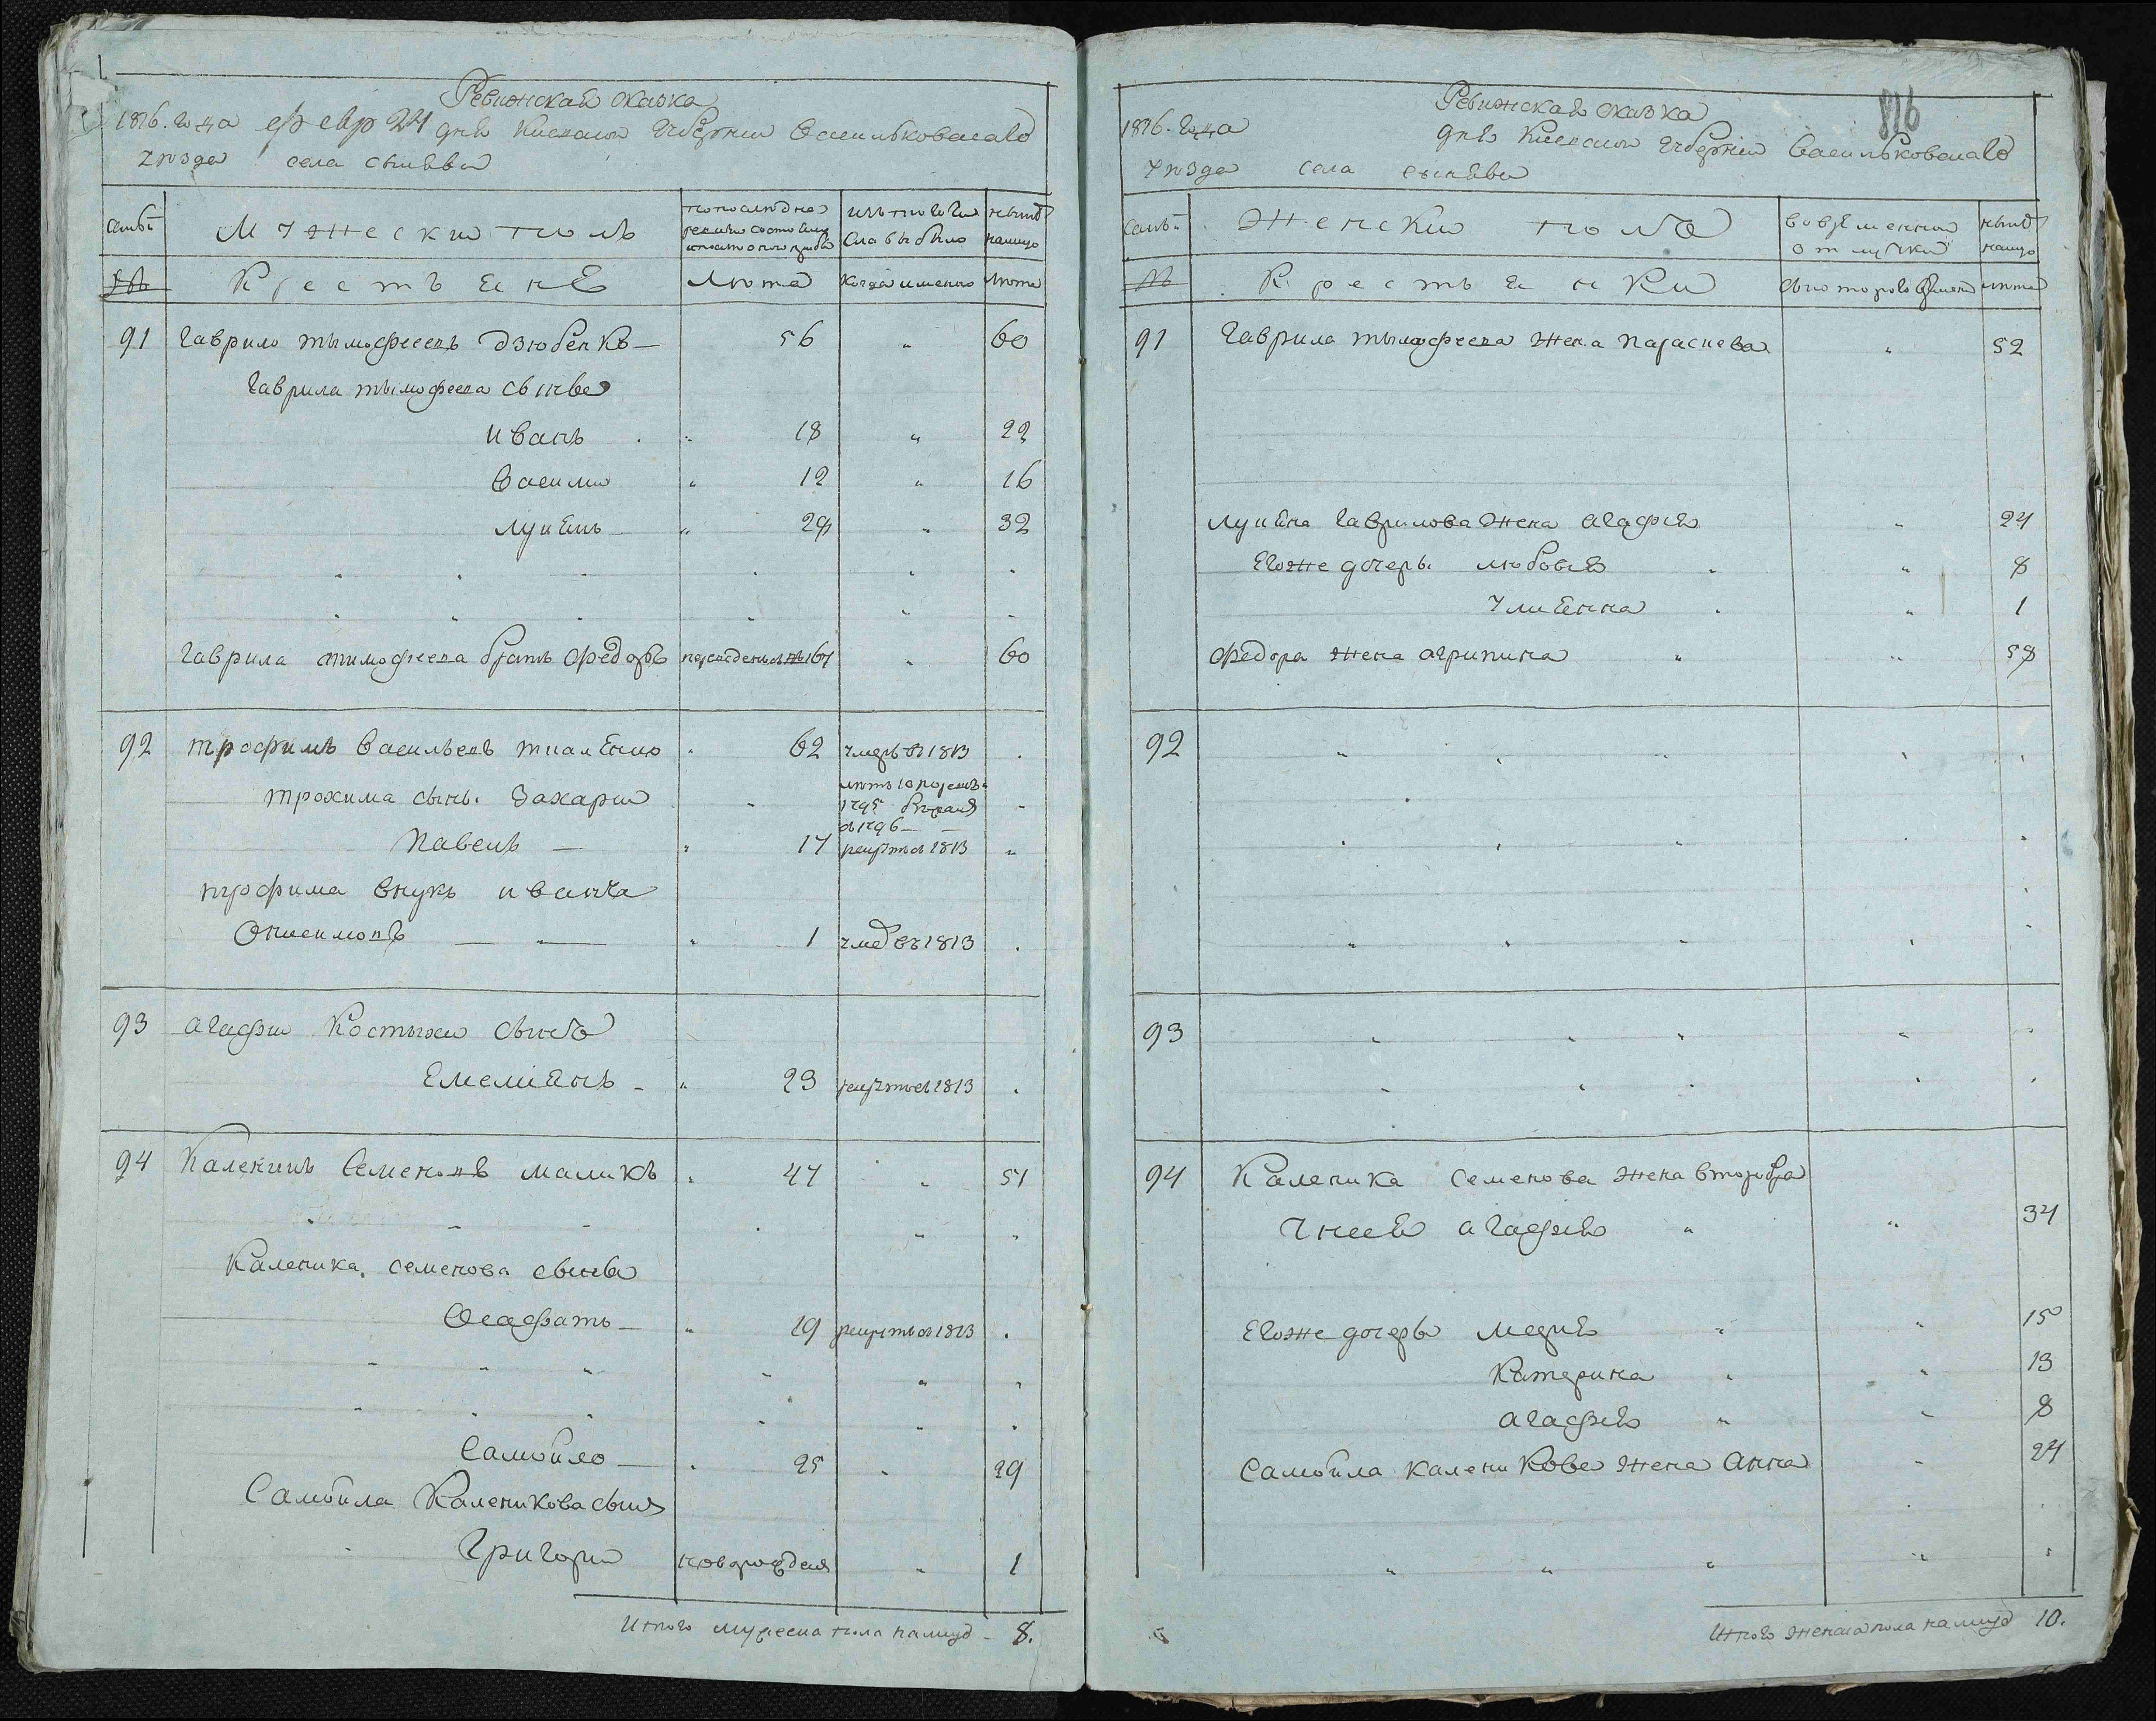 Ревижская сказка
1816. года февр 24 дня Киевской губернии Васильковскаго
уезда села сынявы
семьи
Мужеский полъ
по последней ревизии состояло и после оной прибыло
изъ того числа выбыло
ныне налицо
№
Крестьяне
лета
когда именно
лета
91 Гаврило тымофеевъ дзюбенкъ — 56 " 60
Гаврила тымофеева сынве
иванъ " 18 " 22
василий " 12 " 16
лукянъ " 28 " 32
Гаврила тимофеева братъ федоръ 60
92 трофимъ васильевъ 62 умеръ въ 1813
трохима сынъ. Захарий
1795
1796
Павелъ — 17 рекрутъ 1813
трофима внукъ ивана
Онисимовъ — " — 1 умер въ 1813
93 агафии Костыхи сынъ
Емелиянъ - " 23 рекрутъ 1813
94 Каленикъ Семеновъ маликъ " 47 " 51
Каленика семенова сынве
Осафатъ — " 19 рекрутъ 1813
Самойло — 25 " 29
Самойла Каленикова сынъ
Григорий новорожденъ " 1
Итого мужеска пола налицо - 8.
816
Ревижская сказка
1816. года дня Киевской губернии Васильковскаго
уезда села сынявы
семьи
Женский полъ
во временной отлучки
ныне налицо
№
Крестьянки
с которого времени
лета
91 Гаврила тымофеева жена параскева " 52
лукяна гаврилова жена агафия " 24
Егоже дочерь любовия " 8
улиянна " 1
федора жена агрипина " 58
92
93
94 Каленика семенова жена втораго брака
у нее агафия " 34
Егоже дочеры мария " 15
Катерина " 13
агафия " 8
Самойла каленикова жена анна " 24
Итого женска пола налицо 10.